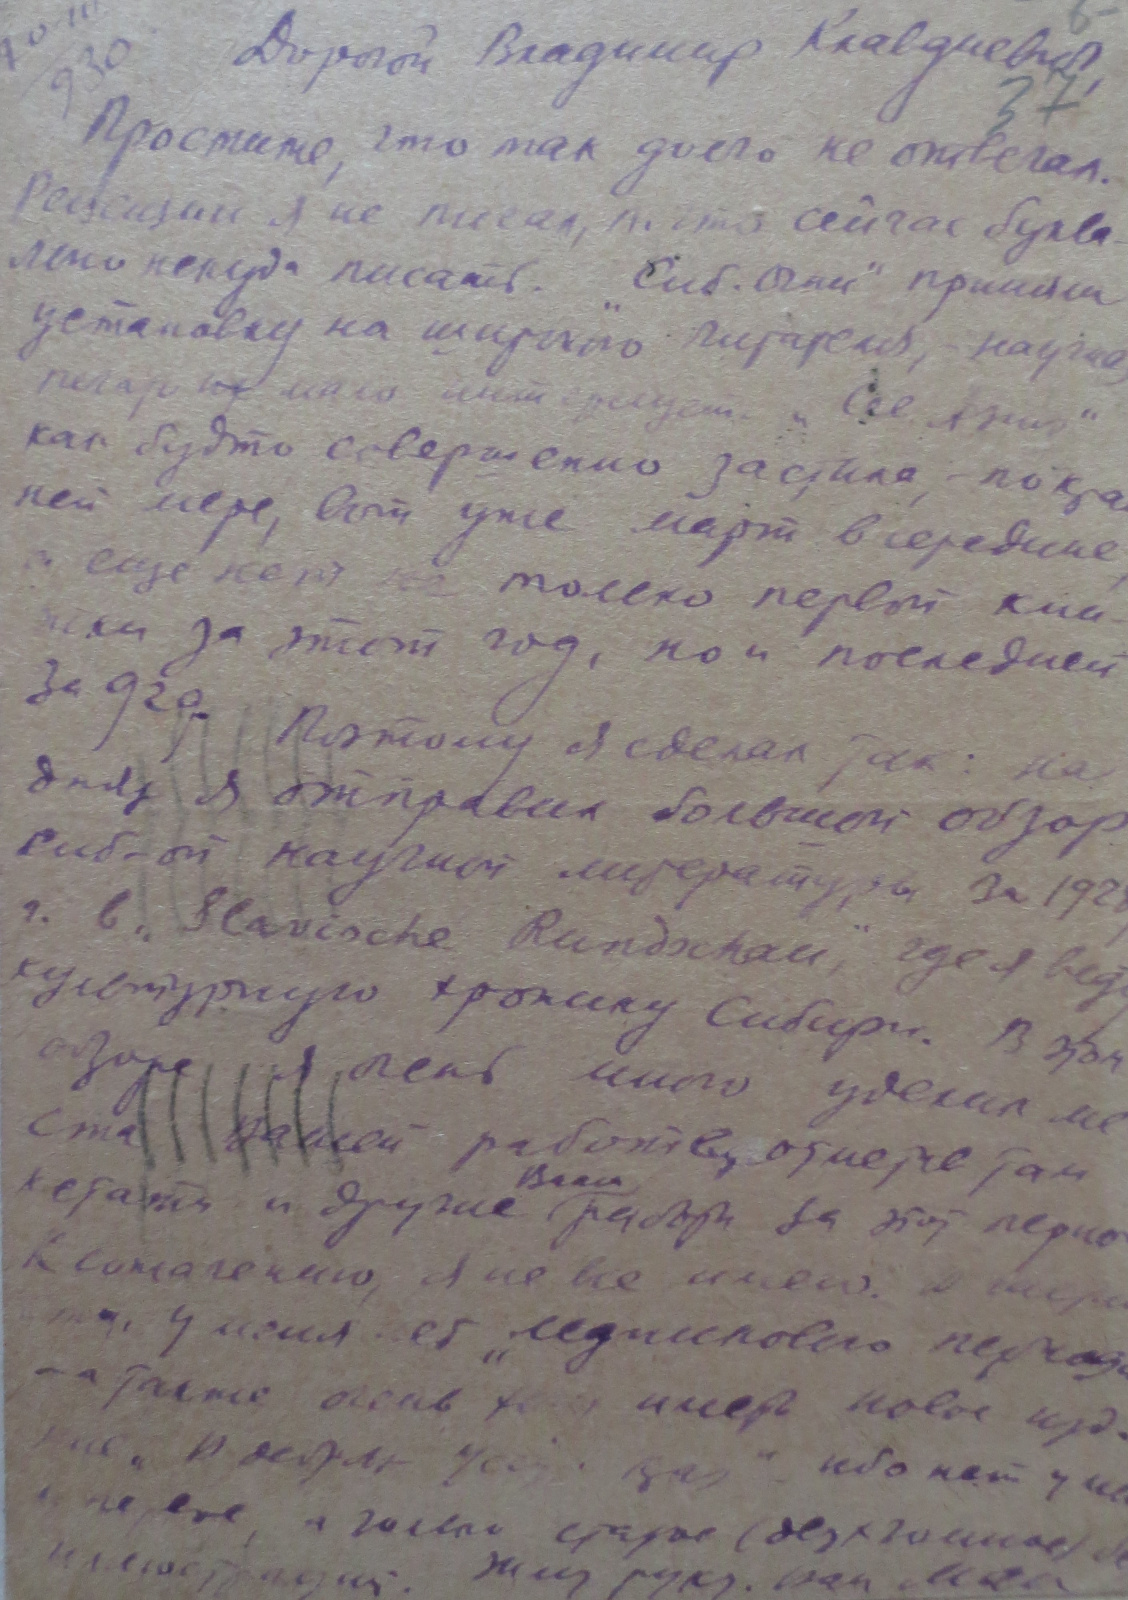 930
37
Дорогой Владимир Клавдиевич,
Простите, что так долго не отвечал.
Рецензии я не писал, сейчас буква-
льно некуда писать. „Сиб. Огни" приняли
установку на широкого читателя, – научная
мало интересует. „Сев. Азия"
как будто совершенно застыла, – по край
ней мере, вот уже март в середине,
а еще нет не только первой кни-
жки за этот год, но и последней
за 929. Поэтому я сделал так: на
днях я отправил большой обзор
сиб-ой научной литературы за 1929
г. в „Slavische Rundschau", где я веду
культурную хронику Сибири. В этом
обзоре я очень много уделил ме
ста Вашей работе, отметив там
кстати и другие Ваши работы за этот перио
К сожалению, я не все имею.
у меня нет „Ледникового периода
а также очень хочу иметь новое изд.
„В дебрях Уссур. края" ибо нет у ме
а только старое (двухтомное) бе
иллюстраций. Жму руку. Ваш